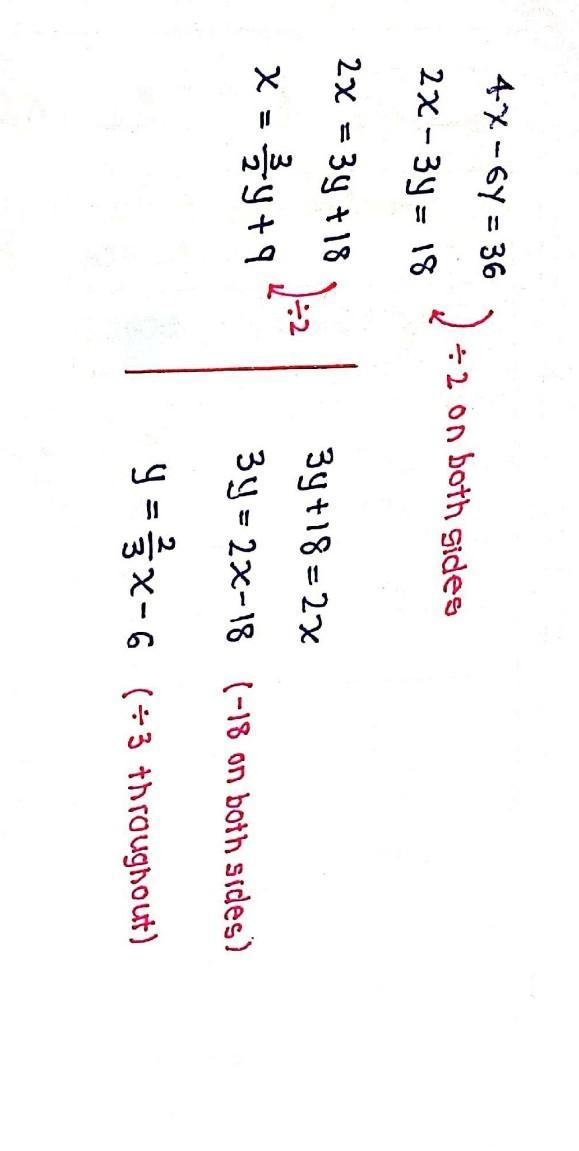 4x - 6y = 36
2x - 3y = 18
÷2 on both sides
2x = 3y + 18
x = 3/2 y + 9
÷2
3y + 18 = 2x
3y = 2x - 18 (-18 on both sides)
y = 2/3 x - 6 (÷3 throughout)